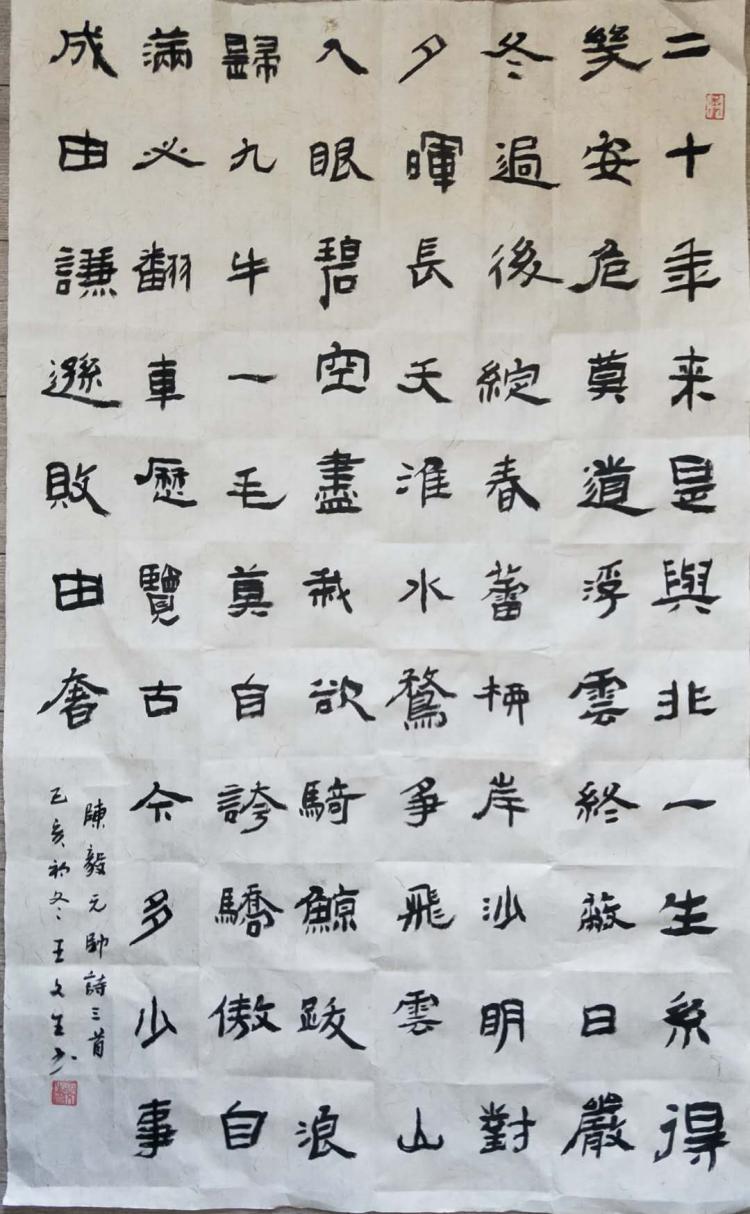 二十年来是與非一生系得
幾安危莫道浮雲終蔽日嚴
冬過後綻春蕾柳岸沙明對
夕暉長天淮水鶩爭飛雲山
入眼碧空盡我欲騎鯨跋浪
歸九牛一毛莫自誇驕傲自
滿必翻車歷覽古今多少事
成由謙遜敗由奢
陳毅元帥詩三首
己亥初冬王文生書